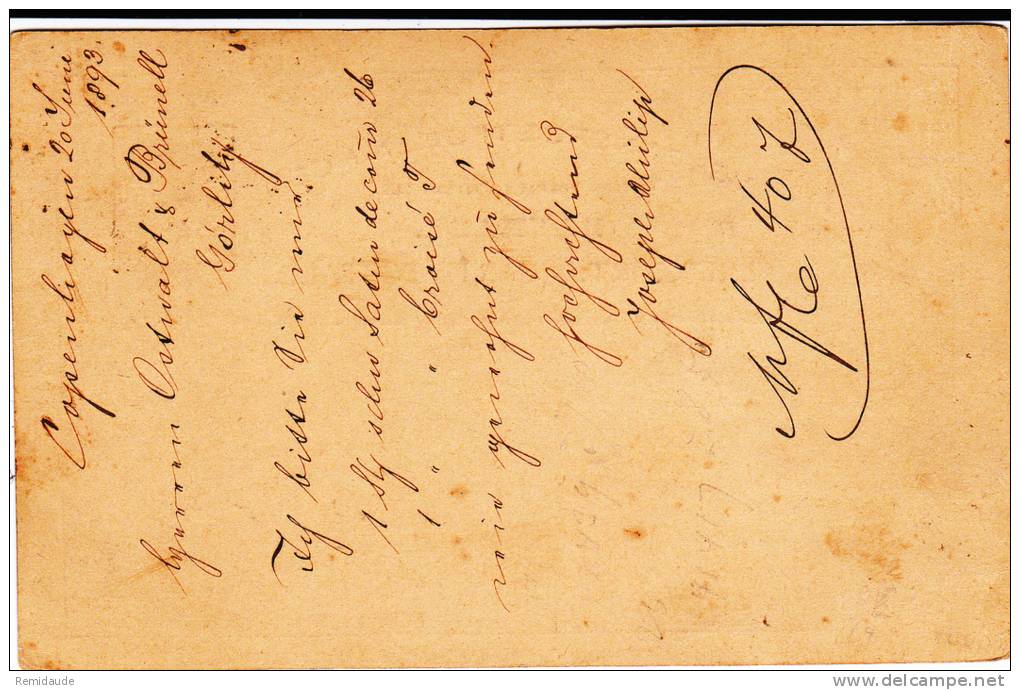 Copenhagen 20 Juni
1893.
Herren Ostwalt & Brünell
Görlitz.
Ich bitte Sie mir
1 Stg schw Satin de 26
1 " " Croisé T
wie gewohnt zu senden.
Hochachtend
Joseph Philip
407
Remidaude
delcampe.net